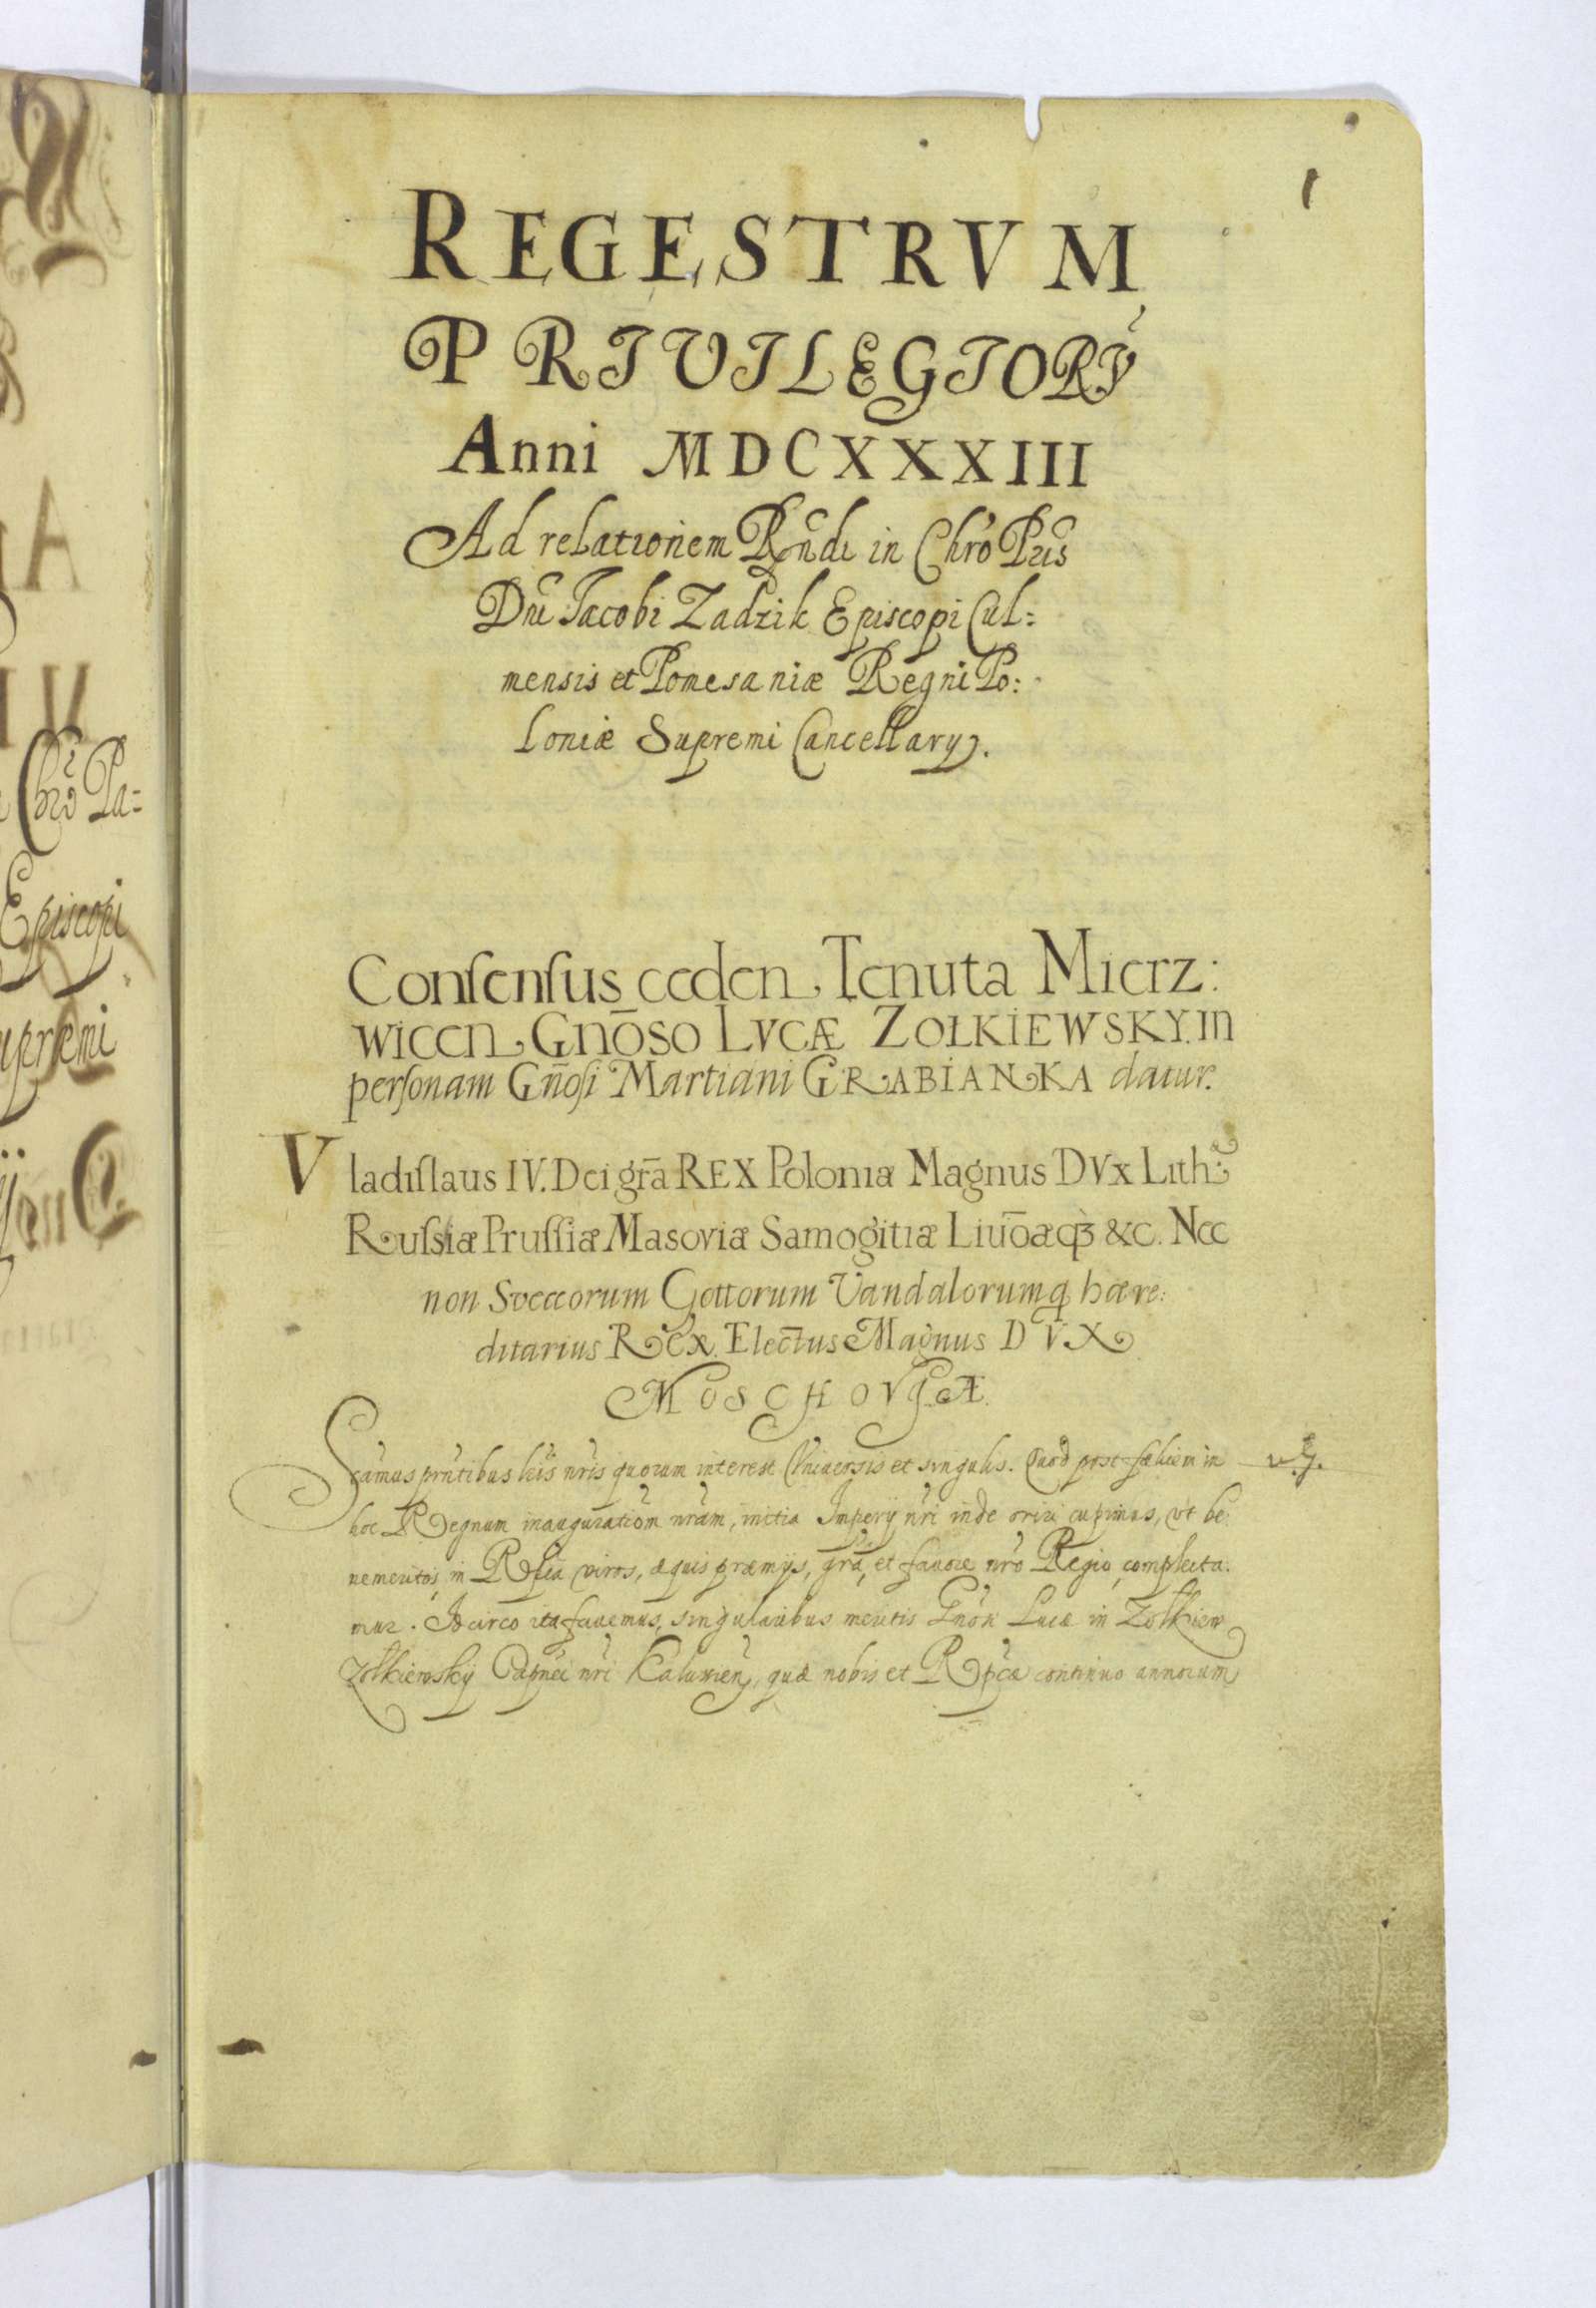 1
REGESTRVM
PRIVILEGIORṼ
Anni MDCXXXIII
Ad relationem Rndi in Chro Pris
Dni Jacobi Zadzik Episcopi Cul:
mensis et Pomesaniæ Regni Po:
loniæ Supremi Cancellarÿ.
Conſenſus ceden Tenuta Mierz:
wiccn Gnõso LVCÆ ZOŁKIEWSKY. in
perſonam Gñoſi Martiani GRABIANKA datur.
Vladiſlaus IV. Dei grã REX Poloniæ Magnus DVx Lith:
Ruſsiæ Pruſſiæ Masoviæ Samogitiæ Liuõæq₃ &c. Nec
non Sveccorum Gottorum Vandalorumq hære:
ditarius REX. Electus Magnus DVX
MOSCHOVIÆ.
Scamus prntibus lris nris quorum interest Vniuersis et singulis. Quod post fælicem in
hoc Regnum inauguratiom nram, initia Imperÿ nri inde oriri cupimus, vt be:
nemeritos in Rplica viros, æquis præmijs, gra, et fauore nro Regio complecta:
mur. Id circo ita fauemus, singularibus meritis Gnosi Lucæ in Zołkiew
Zołkiewskÿ Capnei nri Kaluxien, quæ nobis et Rpcæ continuo annorum
Chrõ Pa=
Episcopi
upremi